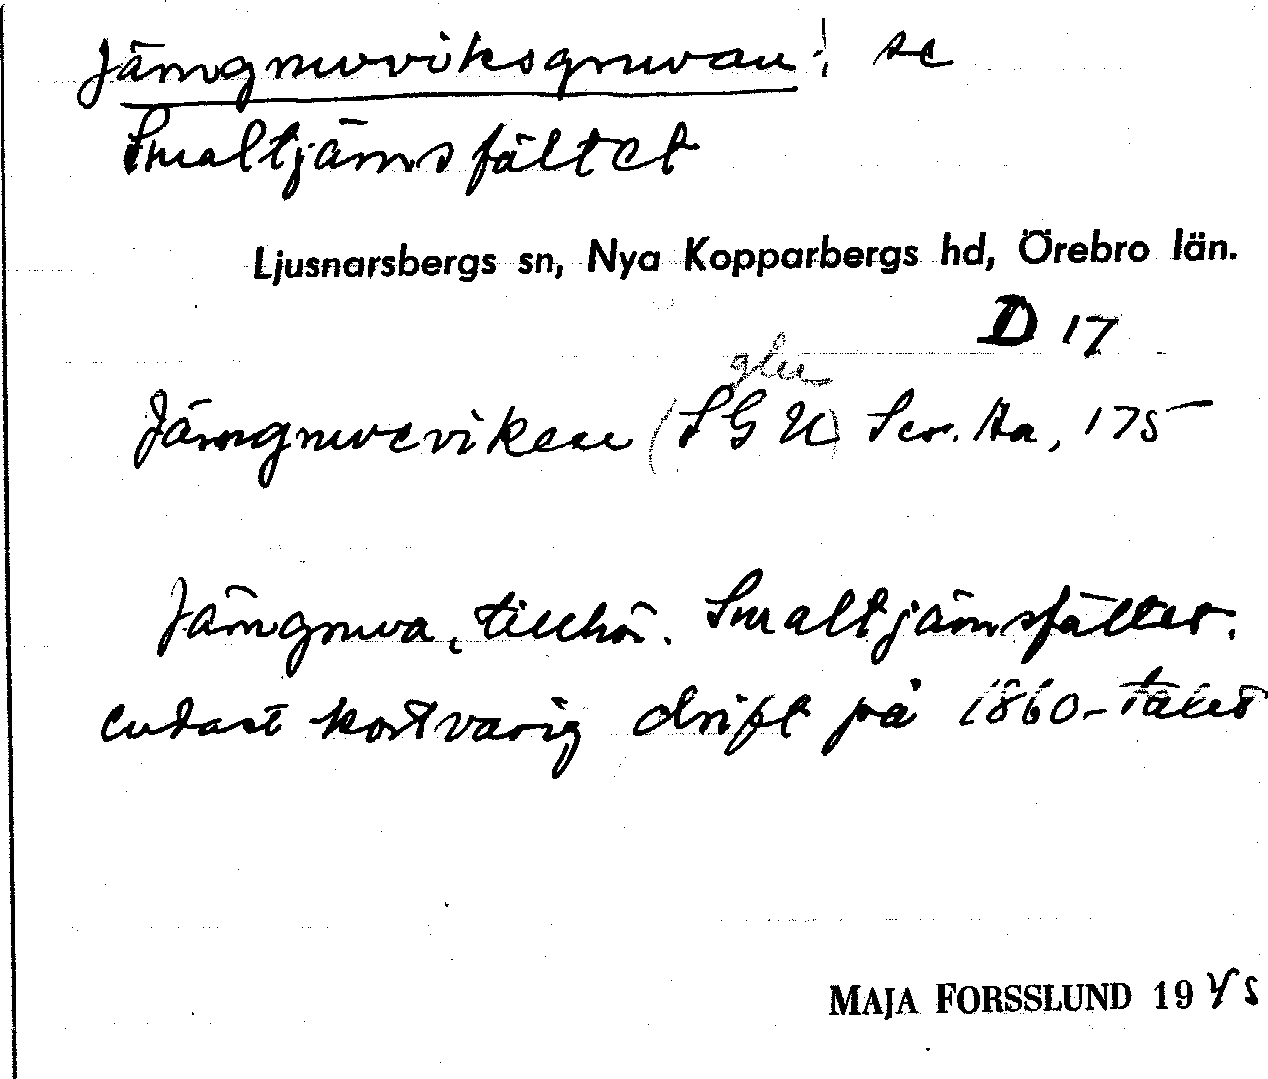 Järngruvviksgruvan: se
Smaltjärnsfältet
Ljusnarsbergs sn, Nya Kopparbergs hd, Örebro län.
D 17
Järngruveviken (SGU) Ser. Aa, 175
Järngruva, tillhör. Smaltjärnsfältet.
endast kortvarig drift på 1860-talet
MAJA FORSSLUND 1945